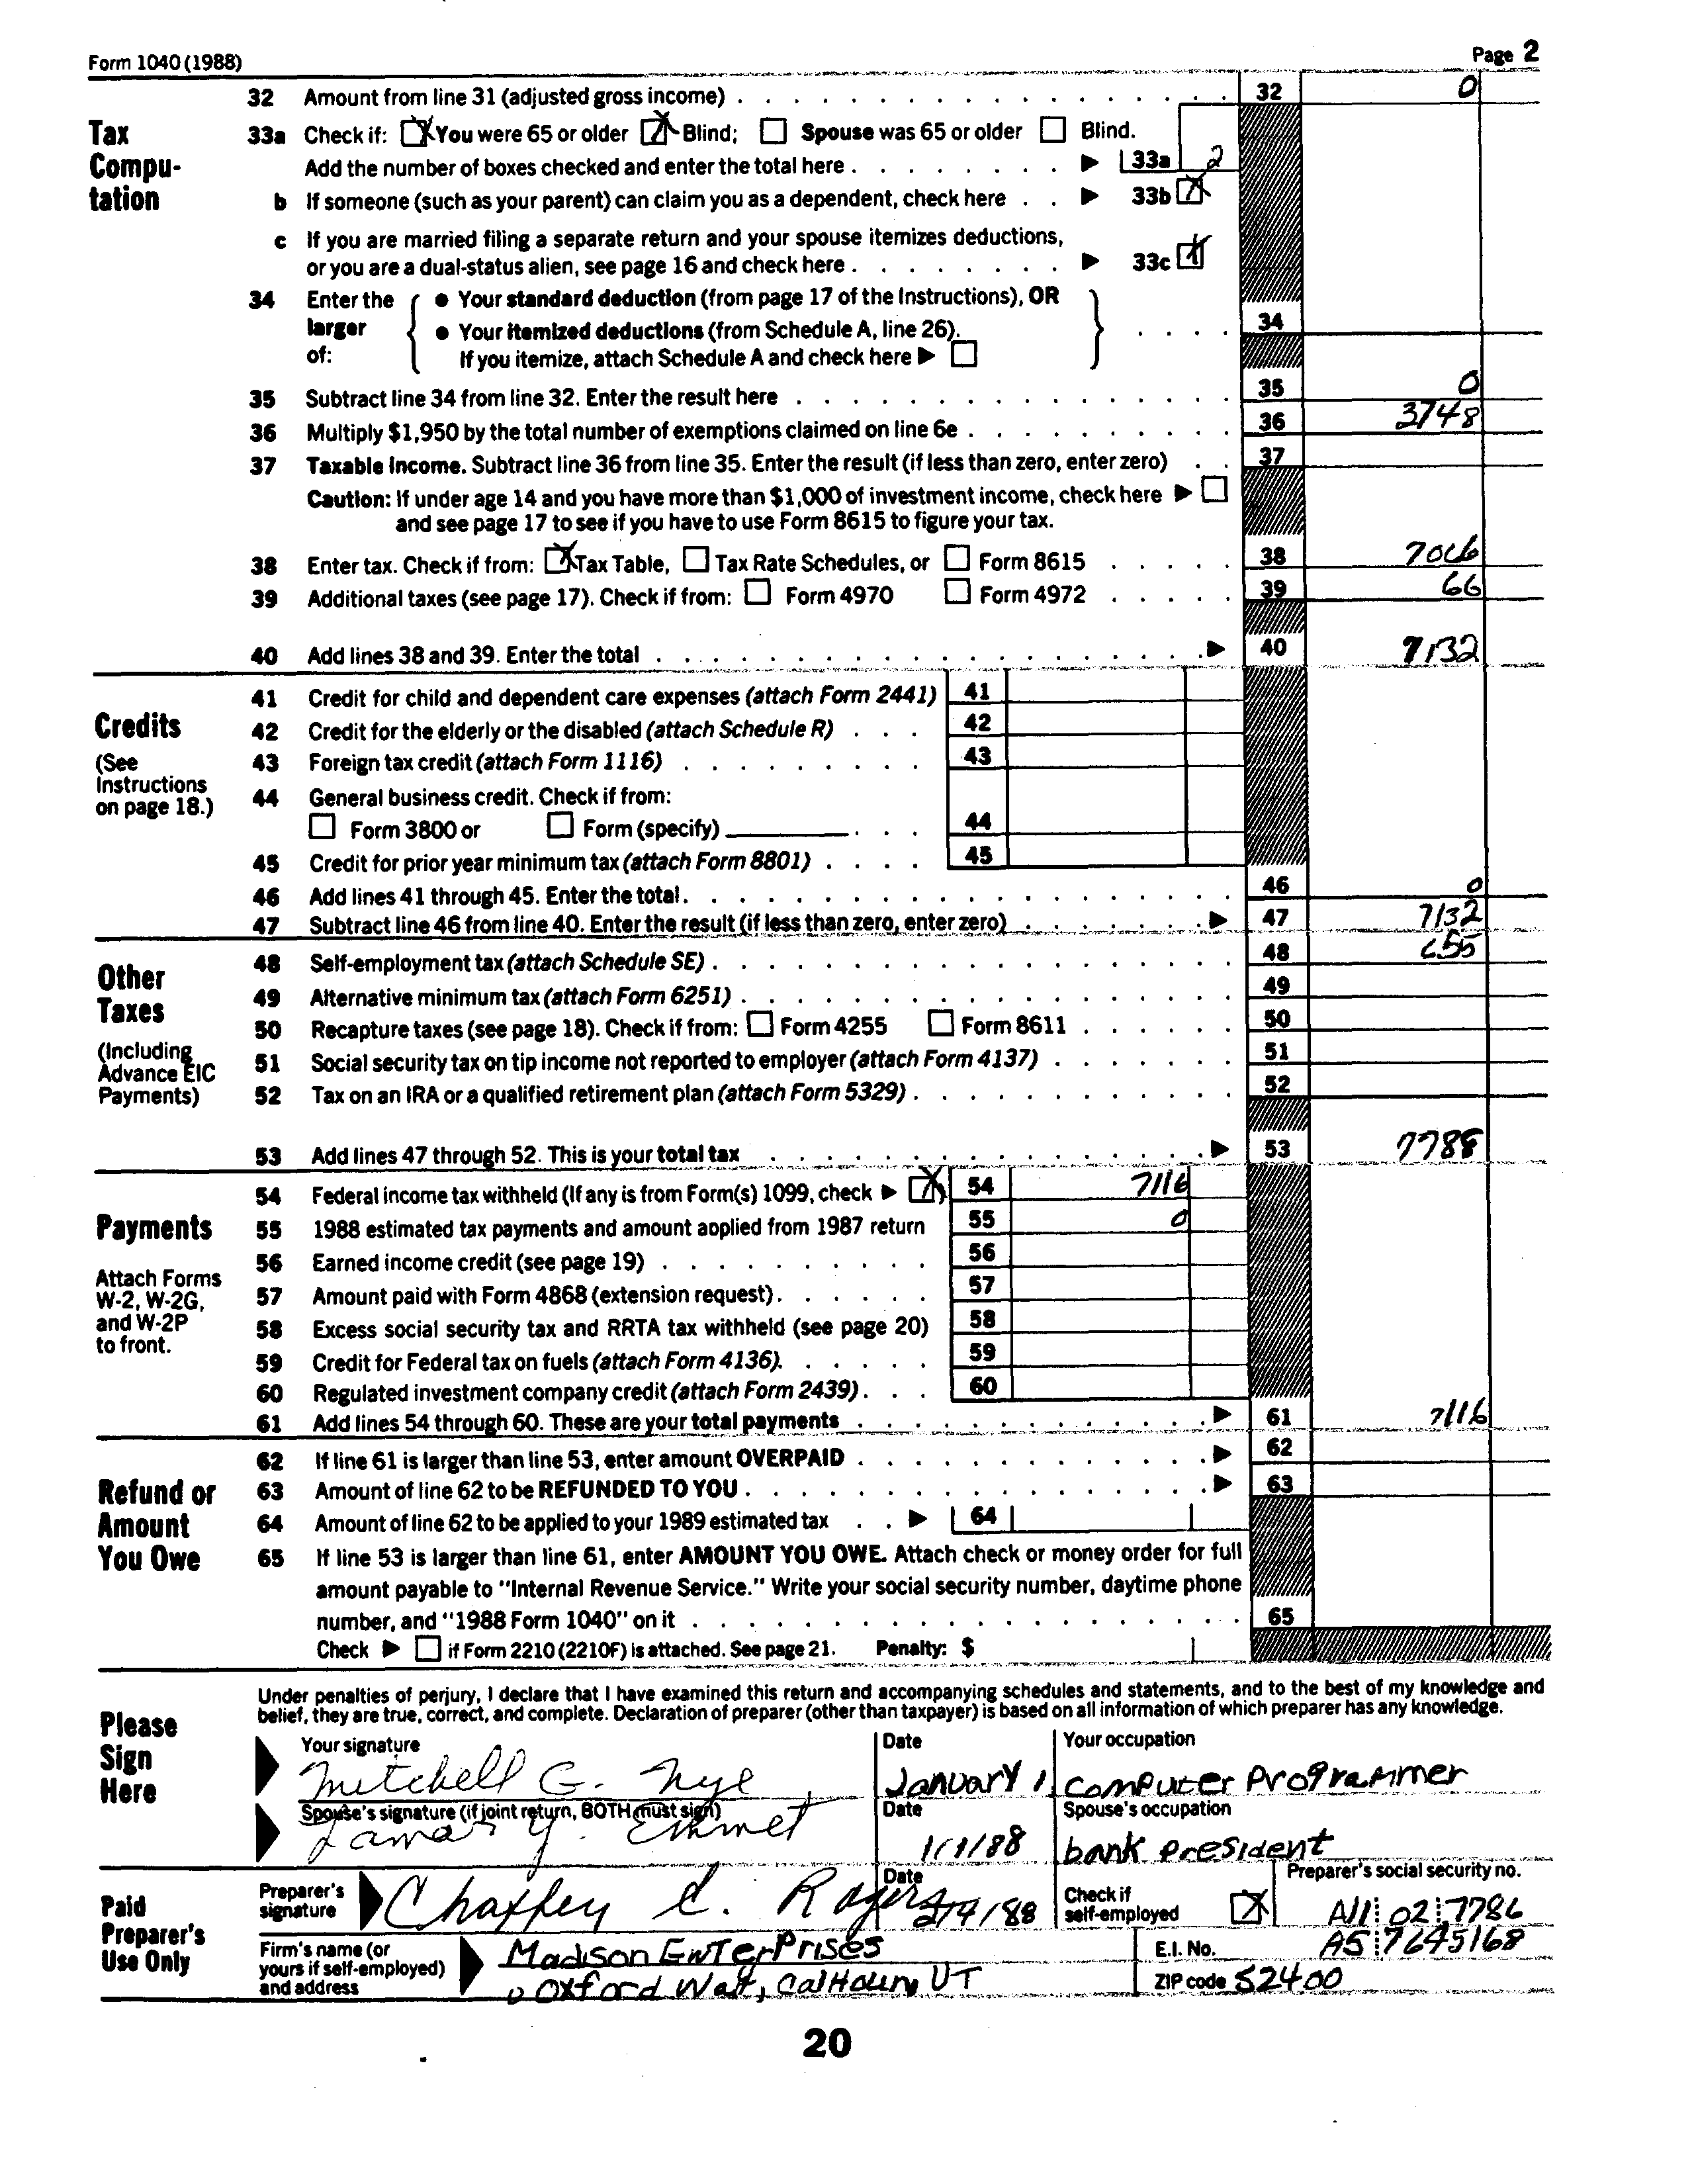 Form 1040 (1988) Page 2
32 Amount from line 31 (adjusted gross income) 32 0
Tax Compu-tation
33a Check if: X You were 65 or older X Blind; Spouse was 65 or older Blind.
Add the number of boxes checked and enter the total here 33a 2
b If someone (such as your parent) can claim you as a dependent, check here 33b X
c If you are married filing a separate return and your spouse itemizes deductions,
or you are a dual-status alien, see page 16 and check here 33c X
34 Enter the larger of: { • Your standard deduction (from page 17 of the Instructions), OR
• Your itemized deductions (from Schedule A, line 26). } 34
If you itemize, attach Schedule A and check here
35 Subtract line 34 from line 32. Enter the result here 35 0
36 Multiply $1,950 by the total number of exemptions claimed on line 6e 36 3748
37 Taxable income. Subtract line 36 from line 35. Enter the result (if less than zero, enter zero) 37
Caution: If under age 14 and you have more than $1,000 of investment income, check here
and see page 17 to see if you have to use Form 8615 to figure your tax.
38 Enter tax. Check if from: X Tax Table, Tax Rate Schedules, or Form 8615 38
39 Additional taxes (see page 17). Check if from: Form 4970 Form 4972 39 66
40 Add lines 38 and 39. Enter the total 40 7132
Credits
(See Instructions on page 18.)
41 Credit for child and dependent care expenses (attach Form 2441) 41
42 Credit for the elderly or the disabled (attach Schedule R) 42
43 Foreign tax credit (attach Form 1116) 43
44 General business credit. Check if from:
Form 3800 or Form (specify) 44
45 Credit for prior year minimum tax (attach Form 8801) 45
46 Add lines 41 through 45. Enter the total. 46 0
47 Subtract line 46 from line 40. Enter the result (if less than zero, enter zero) 47 7132
Other Taxes
(Including Advance EIC Payments)
48 Self-employment tax (attach Schedule SE) 48 655
49 Alternative minimum tax (attach Form 6251) 49
50 Recapture taxes (see page 18). Check if from: Form 4255 Form 8611 50
51 Social security tax on tip income not reported to employer (attach Form 4137) 51
52 Tax on an IRA or a qualified retirement plan (attach Form 5329) 52
53 Add lines 47 through 52. This is your total tax 53 7788
Payments
Attach Forms W-2, W-2G, and W-2P to front.
54 Federal income tax withheld (If any is from Form(s) 1099, check X 54 7116
55 1988 estimated tax payments and amount applied from 1987 return 55 0
56 Earned income credit (see page 19) 56
57 Amount paid with Form 4868 (extension request) 57
58 Excess social security tax and RRTA tax withheld (see page 20) 58
59 Credit for Federal tax on fuels (attach Form 4136). 59
60 Regulated investment company credit (attach Form 2439) 60
61 Add lines 54 through 60. These are your total payments 61 7116
Refund or Amount You Owe
62 If line 61 is larger than line 53, enter amount OVERPAID 62
63 Amount of line 62 to be REFUNDED TO YOU 63
64 Amount of line 62 to be applied to your 1989 estimated tax 64
65 If line 53 is larger than line 61, enter AMOUNT YOU OWE. Attach check or money order for full
amount payable to "Internal Revenue Service." Write your social security number, daytime phone
number, and "1988 Form 1040" on it 65
Check if Form 2210 (2210F) is attached. See page 21. Penalty: $
Please Sign Here
Under penalties of perjury, I declare that I have examined this return and accompanying schedules and statements, and to the best of my knowledge and
belief, they are true, correct, and complete. Declaration of preparer (other than taxpayer) is based on all information of which preparer has any knowledge.
Your signature Date Your occupation
Mitchell G. Nye January 1, Computer Programmer
Spouse's signature (if joint return, BOTH must sign) Date Spouse's occupation
Lamar Y. Emmet 1/1/88 bank President
Paid Preparer's Use Only
Preparer's signature Date Check if self-employed X Preparer's social security no.
Chaffey C. Rogers 2/4/88 02 7786
Firm's name (or yours if self-employed) and address
Madison EnTerPrises E.I. No. AS 7645168
Oxford Wat, CalHoun UT ZIP code 52400
20